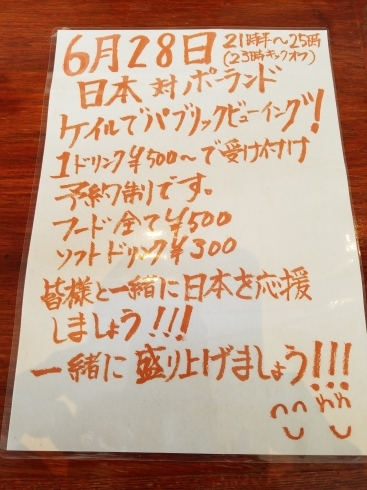 6月28日 21時半～25時
(23時キックオフ)
日本 対 ポーランド
ケイルでパブリックビューイング!
1ドリンク¥500～で受け付け
予約制です。
フード全て¥500
ソフトドリンク¥300
皆様と一緒に日本を応援
しましょう!!!
一緒に盛り上げましょう!!!